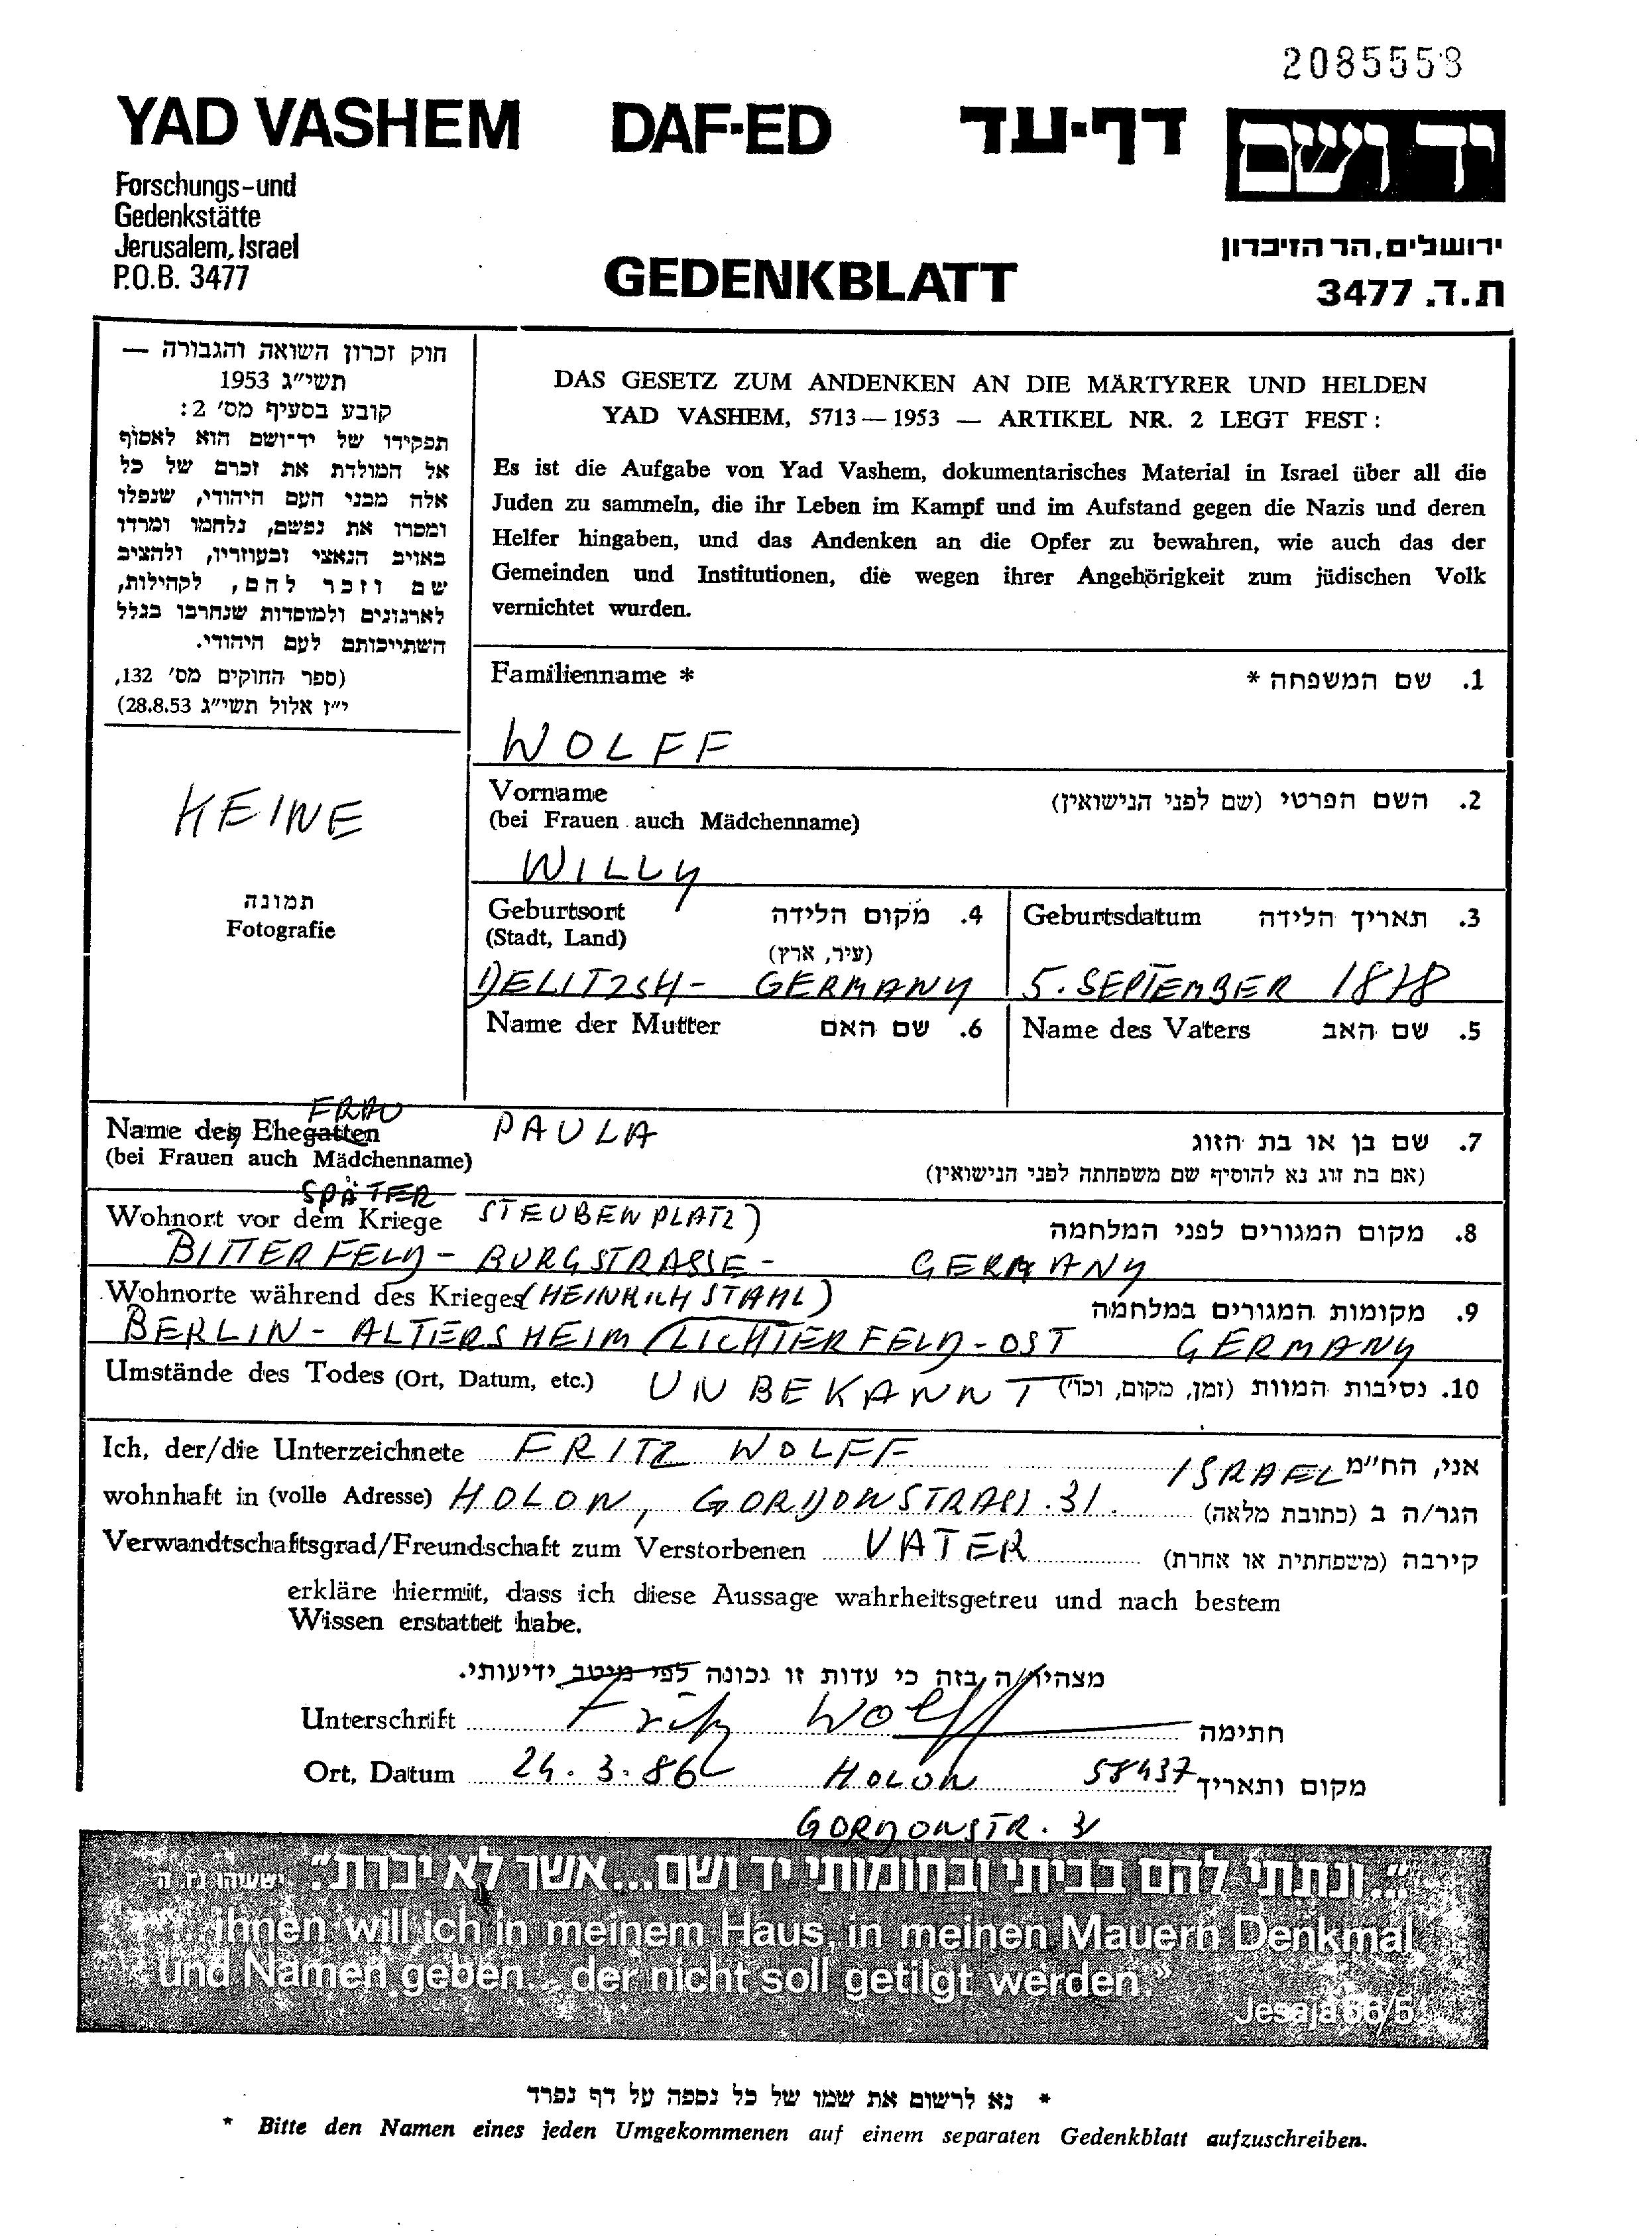 2085558
YAD VASHEM DAF-ED דף-עד יד ושם
Forschungs-und
Gedenkstätte
Jerusalem, Israel
P.O.B. 3477
GEDENKBLATT
ירושלים, הר הזיכרון
ת.ד. 3477
חוק זכרון השואה והגבורה —
תשי״ג 1953
קובע בסעיף מס׳ 2:
תפקידו של יד־ושם הוא לאסוף
אל המולדת את זכרם של כל
אלה מבני העם היהודי, שנפלו
ומסרו את נפשם, נלחמו ומרדו
באויב הנאצי ובעוזריו, ולהציב
שם וזכר להם, לקהילות,
לארגונים ולמוסדות שנחרבו בגלל
השתייכותם לעם היהודי.
(ספר החוקים מס׳ 132,
י״ז אלול תשי״ג 28.8.53)
DAS GESETZ ZUM ANDENKEN AN DIE MÄRTYRER UND HELDEN
YAD VASHEM, 5713—1953 — ARTIKEL NR. 2 LEGT FEST:
Es ist die Aufgabe von Yad Vashem, dokumentarisches Material in Israel über all die
Juden zu sammeln, die ihr Leben im Kampf und im Aufstand gegen die Nazis und deren
Helfer hingaben, und das Andenken an die Opfer zu bewahren, wie auch das der
Gemeinden und Institutionen, die wegen ihrer Angehörigkeit zum jüdischen Volk
vernichtet wurden.
Familienname * 1. שם המשפחה *
WOLFF
KEINE
תמונה
Fotografie
Vorname 2. השם הפרטי (שם לפני הנישואין)
(bei Frauen auch Mädchenname)
WILLY
Geburtsort 4. מקום הלידה Geburtsdatum 3. תאריך הלידה
(Stadt, Land) (עיר, ארץ)
DELITZSH - GERMANY 5. SEPTEMBER 1878
Name der Mutter 6. שם האם Name des Vaters 5. שם האב
FRAU
Name des Ehegatten PAULA 7. שם בן או בת הזוג
(bei Frauen auch Mädchenname) (אם בת זוג נא להוסיף שם משפחתה לפני הנישואין)
SPÄTER
Wohnort vor dem Kriege STEUBENPLATZ) 8. מקום המגורים לפני המלחמה
BITTERFELD - BURGSTRASSE - GERMANY
Wohnorte während des Krieges (HEINRICH STAHL) 9. מקומות המגורים במלחמה
BERLIN - ALTERSHEIM / LICHTERFELD - OST GERMANY
Umstände des Todes (Ort, Datum, etc.) UNBEKANNT 10. נסיבות המוות (זמן, מקום, וכו׳)
Ich, der/die Unterzeichnete FRITZ WOLFF אני, הח״מ
wohnhaft in (volle Adresse) HOLON, GORDONSTRASS. 31. ISRAEL הגר/ה ב (כתובת מלאה)
Verwandtschaftsgrad/Freundschaft zum Verstorbenen VATER קירבה (משפחתית או אחרת)
erkläre hiermit, dass ich diese Aussage wahrheitsgetreu und nach bestem
Wissen erstattet habe.
מצהיר/ה בזה כי עדות זו נכונה לפי מיטב ידיעותי.
Unterschrift Fritz Wolff חתימה
Ort, Datum 24.3.86 HOLON 58437 מקום ותאריך
GORDONSTR. 31
״...ונתתי להם בביתי ובחומותי יד ושם...אשר לא יכרת״. ישעיהו נו, ה
"...ihnen will ich in meinem Haus, in meinen Mauern Denkmal
und Namen geben... der nicht soll getilgt werden."
Jesaja 56/5
* נא לרשום את שמו של כל נספה על דף נפרד
* Bitte den Namen eines jeden Umgekommenen auf einem separaten Gedenkblatt aufzuschreiben.